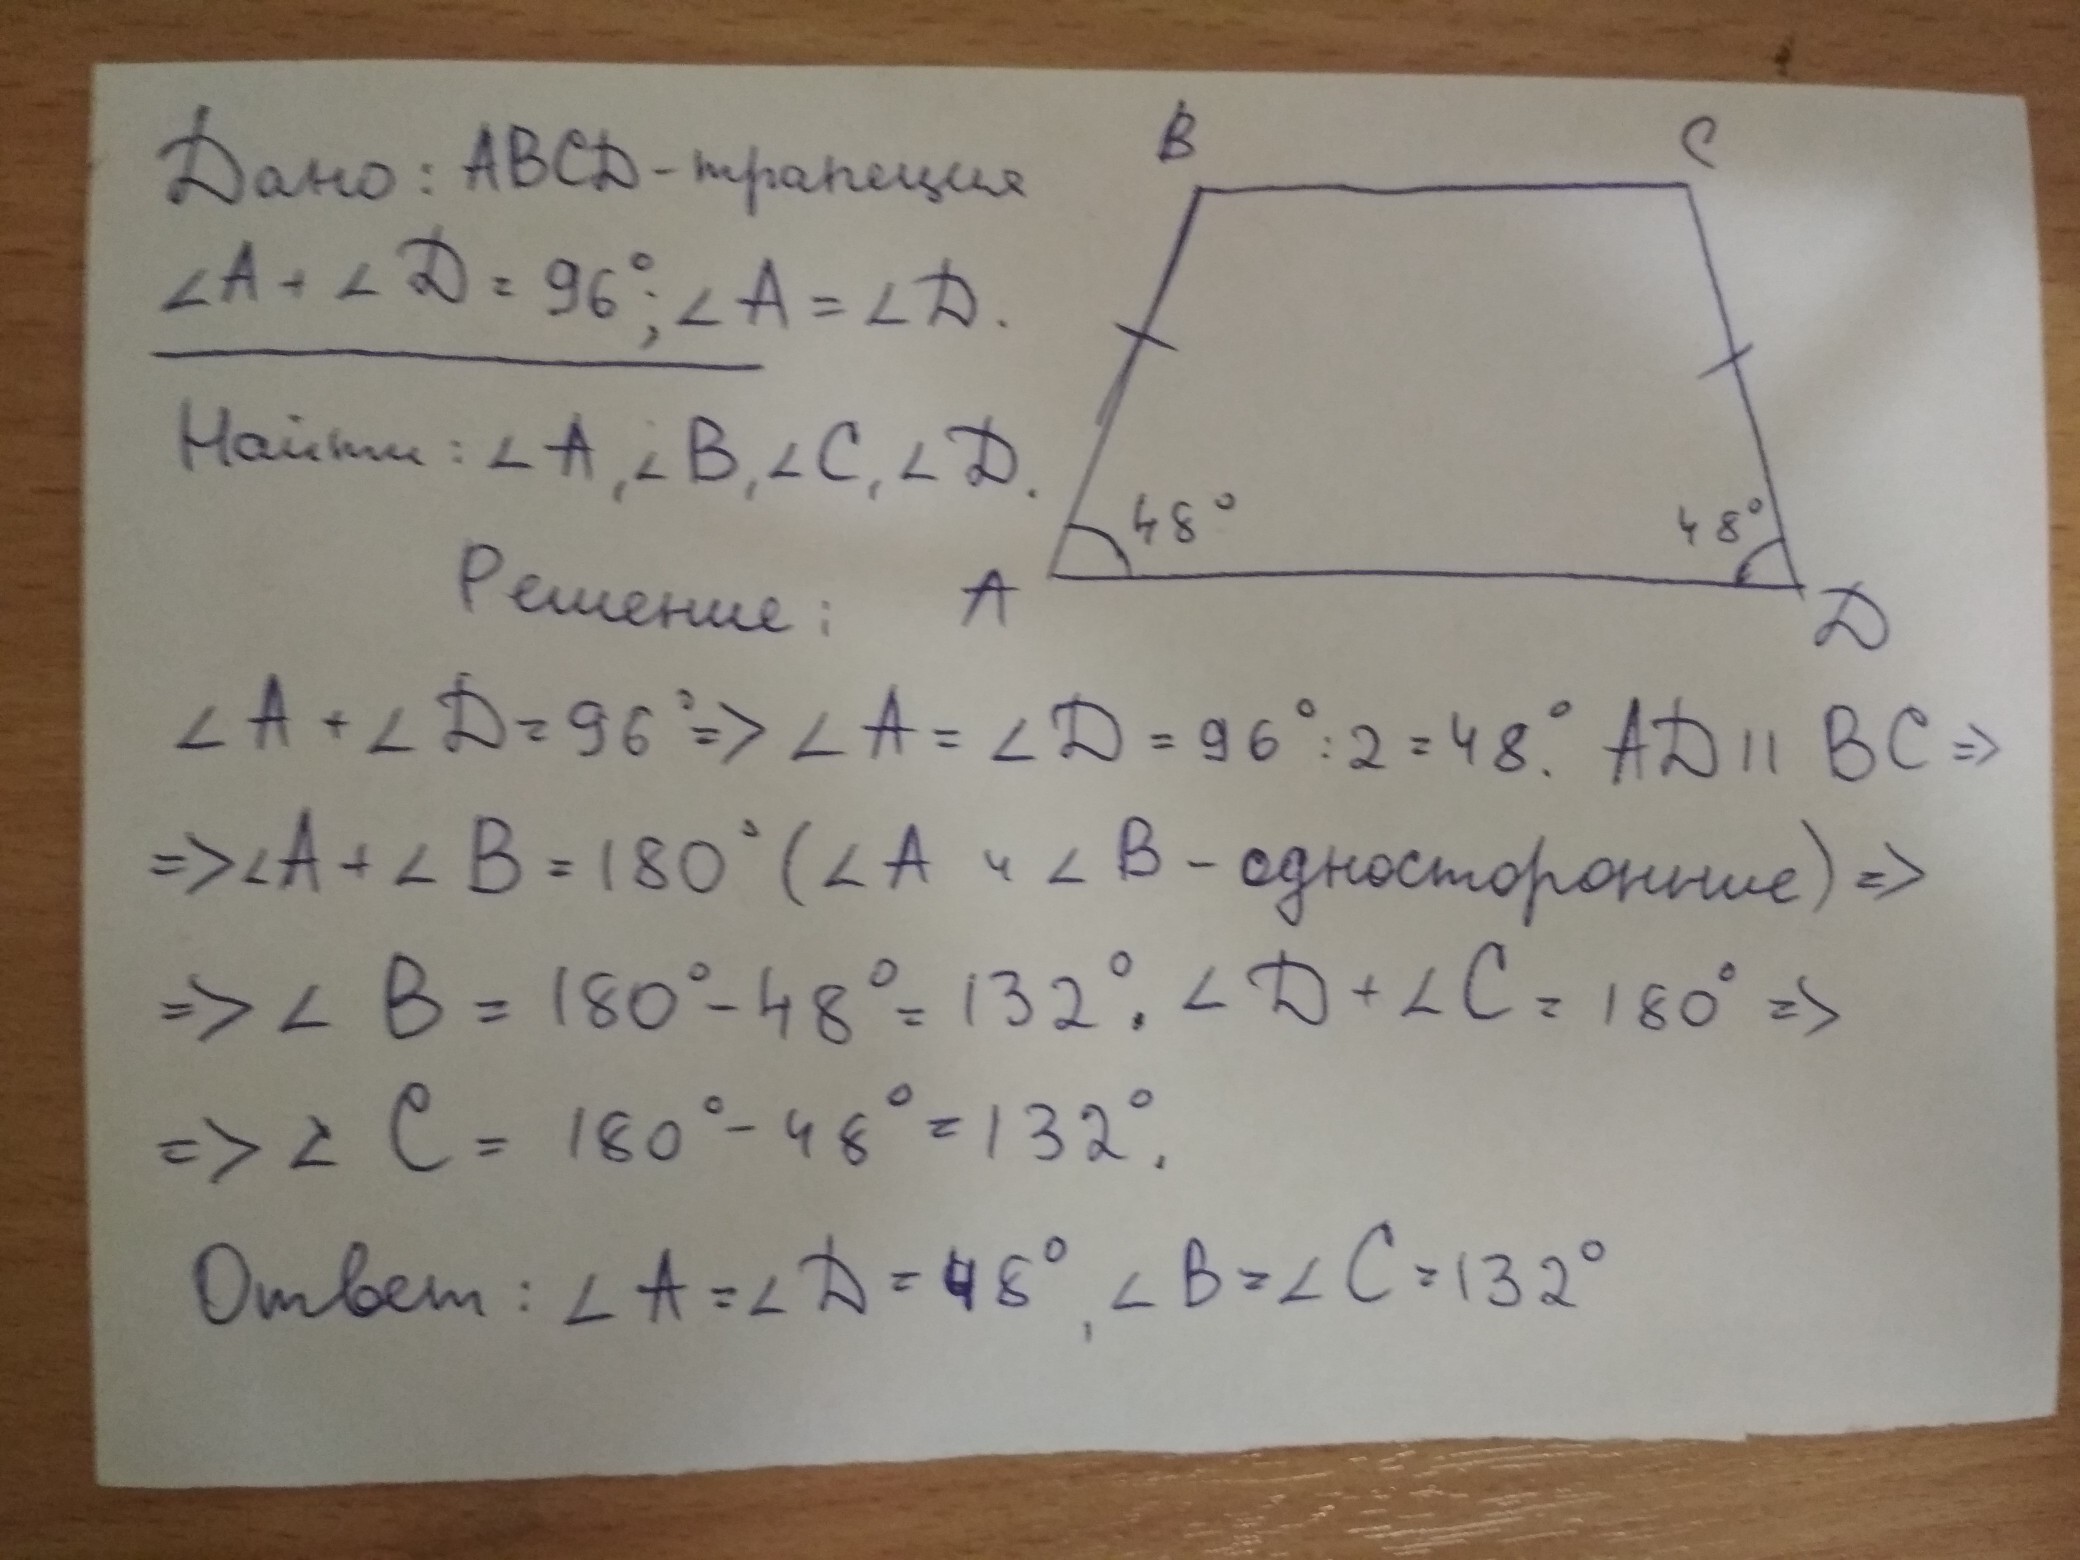 Дано: ABCD-трапеция
∠A + ∠D = 96°; ∠A = ∠D.
Найти: ∠A, ∠B, ∠C, ∠D.
B
C
48°
48°
A
D
Решение:
∠A + ∠D = 96° => ∠A = ∠D = 96° : 2 = 48°. AD || BC =>
=> ∠A + ∠B = 180° (∠A и ∠B - односторонние) =>
=> ∠B = 180° - 48° = 132°. ∠D + ∠C = 180° =>
=> ∠C = 180° - 48° = 132°.
Ответ: ∠A = ∠D = 48°, ∠B = ∠C = 132°